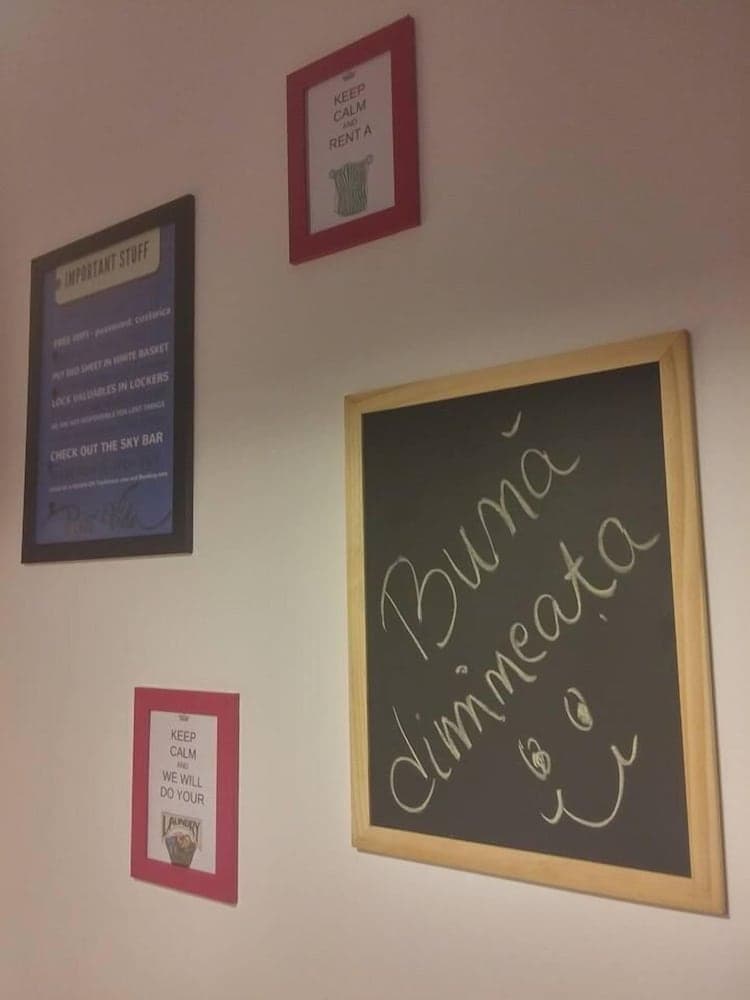 KEEP
CALM
AND
RENT A
IMPORTANT STUFF
FREE WIFI - password: costarica
PUT BED SHEET IN WHITE BASKET
LOCK VALUABLES IN LOCKERS
WE ARE NOT RESPONSIBLE FOR LOST THINGS
CHECK OUT THE SKY BAR
Bună
dimineața
KEEP
CALM
AND
WE WILL
DO YOUR
LAUNDRY